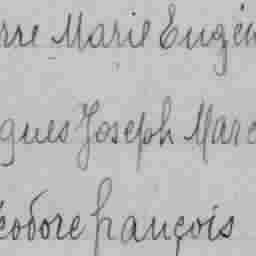 rre Marie Eugèn
ques Joseph Marc
éodore françois